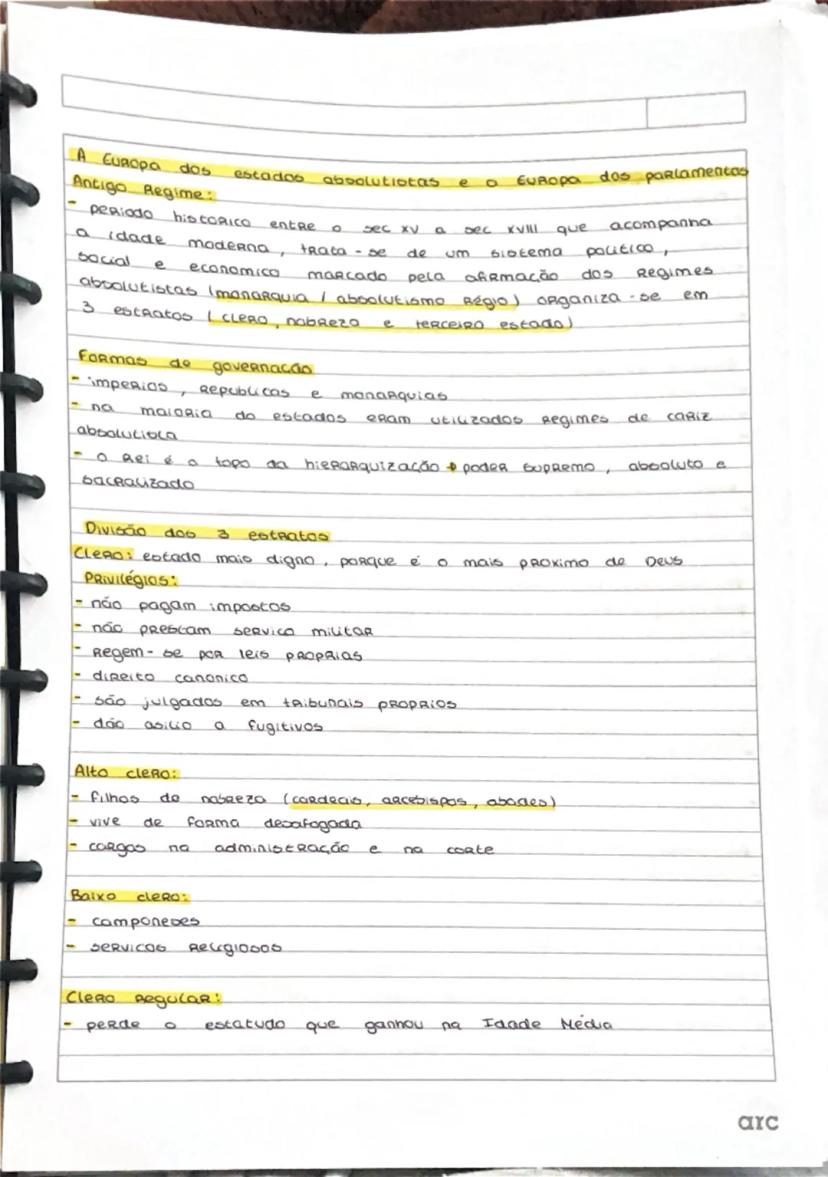 A Europa dos estados absolutistas e a Europa dos parlamentos
Antigo Regime:
- periodo historico entre o sec XV a sec XVIII que acompanha
a idade moderna, trata-se de um sistema politico,
social e economico marcado pela afirmação dos Regimes
absolutistas (monarquia / absolutismo Régio) organiza-se em
3 estratos (clero, nobreza e terceiro estado)
Formas de governação
- imperios, republicas e monarquias
- na maioria do estados eram utilizados regimes de cariz
absolutista
- o Rei é o topo da hierarquização → poder supremo, absoluto e
sacralizado
Divisão dos 3 estratos
Clero: estado mais digno, porque é o mais proximo de Deus
Privilégios:
- não pagam impostos
- não prestam servico militar
- Regem-se por leis proprias
- direito canonico
- são julgados em tribunais proprios
- dão asilio a fugitivos
Alto clero:
- filhos da nobreza (cardeais, arcebispos, abades)
- vive de forma desafogada
- cargos na administração e na corte
Baixo clero:
- camponeses
- servicos religiosos
Clero Regular:
- perde o estatudo que ganhou na Idade Média
arc